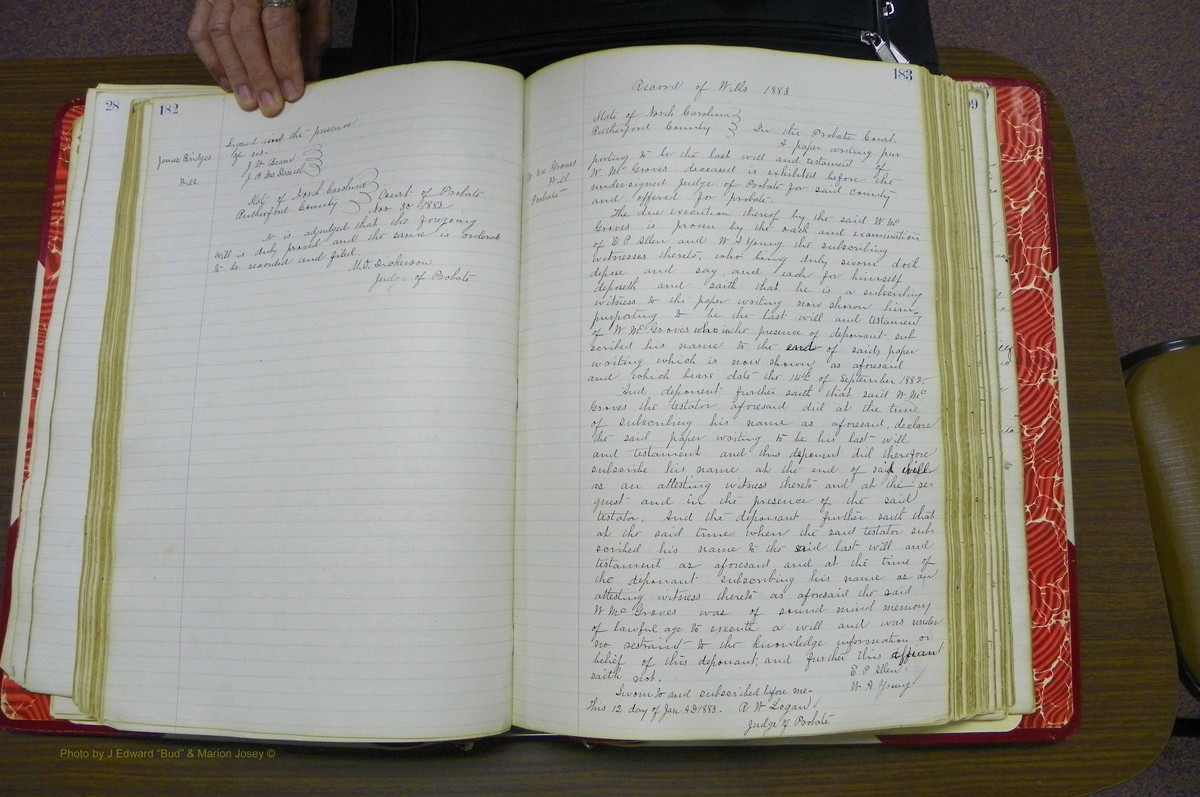 28
182
Signed in the presence
of us.
J. W. Beam
J. A. McDaniel
James Bridges
Will
State of North Carolina
Rutherford County
Court of Probate
Nov 30 1883
It is adjudged that the foregoing
will is duly proved and the same is ordered
to be recorded and filed
M. O. Dickerson
Judge of Probate
183
99
Record of Wills 1883
State of North Carolina
Rutherford County
In the Probate Court.
W Mc Groves
Will
Probate
A paper writing pur
porting to be the last will and testament of
W Mc Groves deceased is exhibited before the
undersigned Judge of Probate for said County
and offered for probate.
The due execution thereof by the said W Mc
Groves is proven by the oath and examination
of E P Allen and W A Young the subscribing
witnesses thereto, who being duly sworn doth
depose and say and each for himself
deposeth and saith that he is a subscribing
witness to the paper writing now shown him
purporting to be the last will and testament
of W Mc Groves who in the presence of deponant sub
scribed his name to the end of said paper
writing which is now shown as aforesaid
and which bears date the 14th of September 1882.
And deponent further saith that said W Mc
Groves the testator aforesaid did at the time
of subscribing his name as aforesaid, declare
the said paper writing to be his last will
and testament and this deponent did therefore
subscribe his name at the end of said will
as an attesting witness thereto and at the re-
quest and in the presence of the said
testator. And the deponant further saith that
at the said time when the said testator sub-
scribed his name to the said last will and
testament as aforesaid and at the time of
the deponant subscribing his name as an
attesting witness thereto as aforesaid the said
W Mc Groves was of sound mind memory
of lawful age to execute a will and was under
no restraint to the knowledge information or
belief of this deponant, and further this affiant
saith not.
E P Allen
W A Young
Sworn to and subscribed before me
this 12 day of Jan AD 1883. R W Logan
Judge of Probate
Photo by J Edward "Bud" & Marion Josey ©